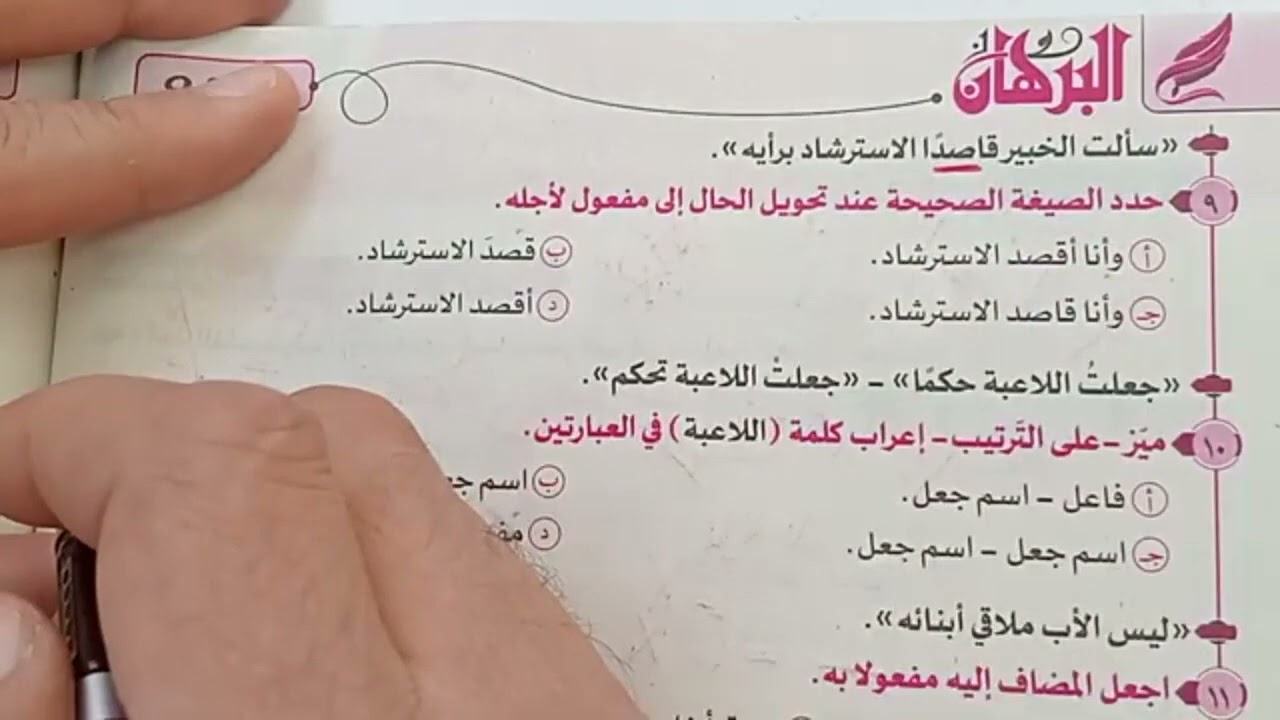 البرهان
«سألت الخبير قاصدًا الاسترشاد برأيه».
٩ حدد الصيغة الصحيحة عند تحويل الحال إلى مفعول لأجله.
أ وأنا أقصد الاسترشاد. ب قصدَ الاسترشاد.
جـ وأنا قاصد الاسترشاد. د أقصد الاسترشاد.
«جعلتُ اللاعبة حكمًا» – «جعلتْ اللاعبة تحكم».
١٠ ميّز –على التَرتيب– إعراب كلمة (اللاعبة) في العبارتين.
أ فاعل – اسم جعل. ب اسم
جـ اسم جعل – اسم جعل. د
«ليس الأب ملاقي أبنائه».
١١ اجعل المضاف إليه مفعولا به.